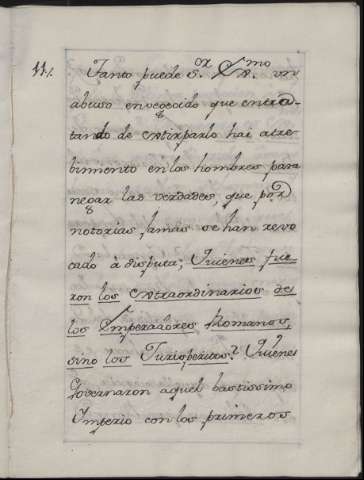 11.
Tanto puede S.or Ex.mo un
abuso envegecido que entra-
tando de extirparlo hai atre
bimento en los hombres para
negar las verdades, que por
notorias jamas se han revo
cado à disputa; Quienes fue
ron los extraordinarios de
los Emperadores Romanos,
sino los Jurisperitos? Quienes
Governaron aquel bastissimo
Imperio con los primeros